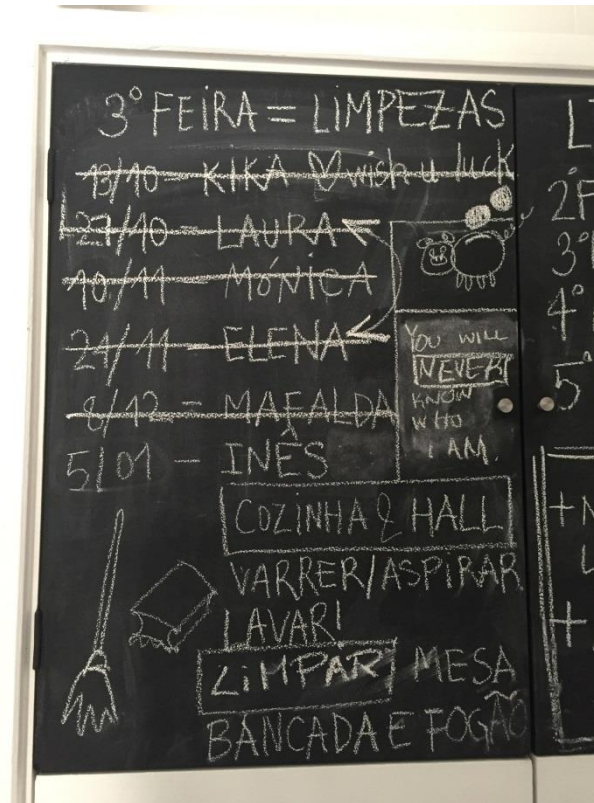 3º FEIRA = LIMPEZAS
13/10 - KIKA ♡ wish u luck
27/10 - LAURA
10/11 - MÓNICA
24/11 - ELENA
8/12 - MAFALDA
5/01 - INÊS
YOU WILL
NEVER
KNOW
WHO
I AM.
COZINHA & HALL
VARRER/ASPIRAR
LAVAR!
LIMPAR MESA
BANCADA E FOGÃO
L
2ºF
3º
4º
5º
+ N
L
+